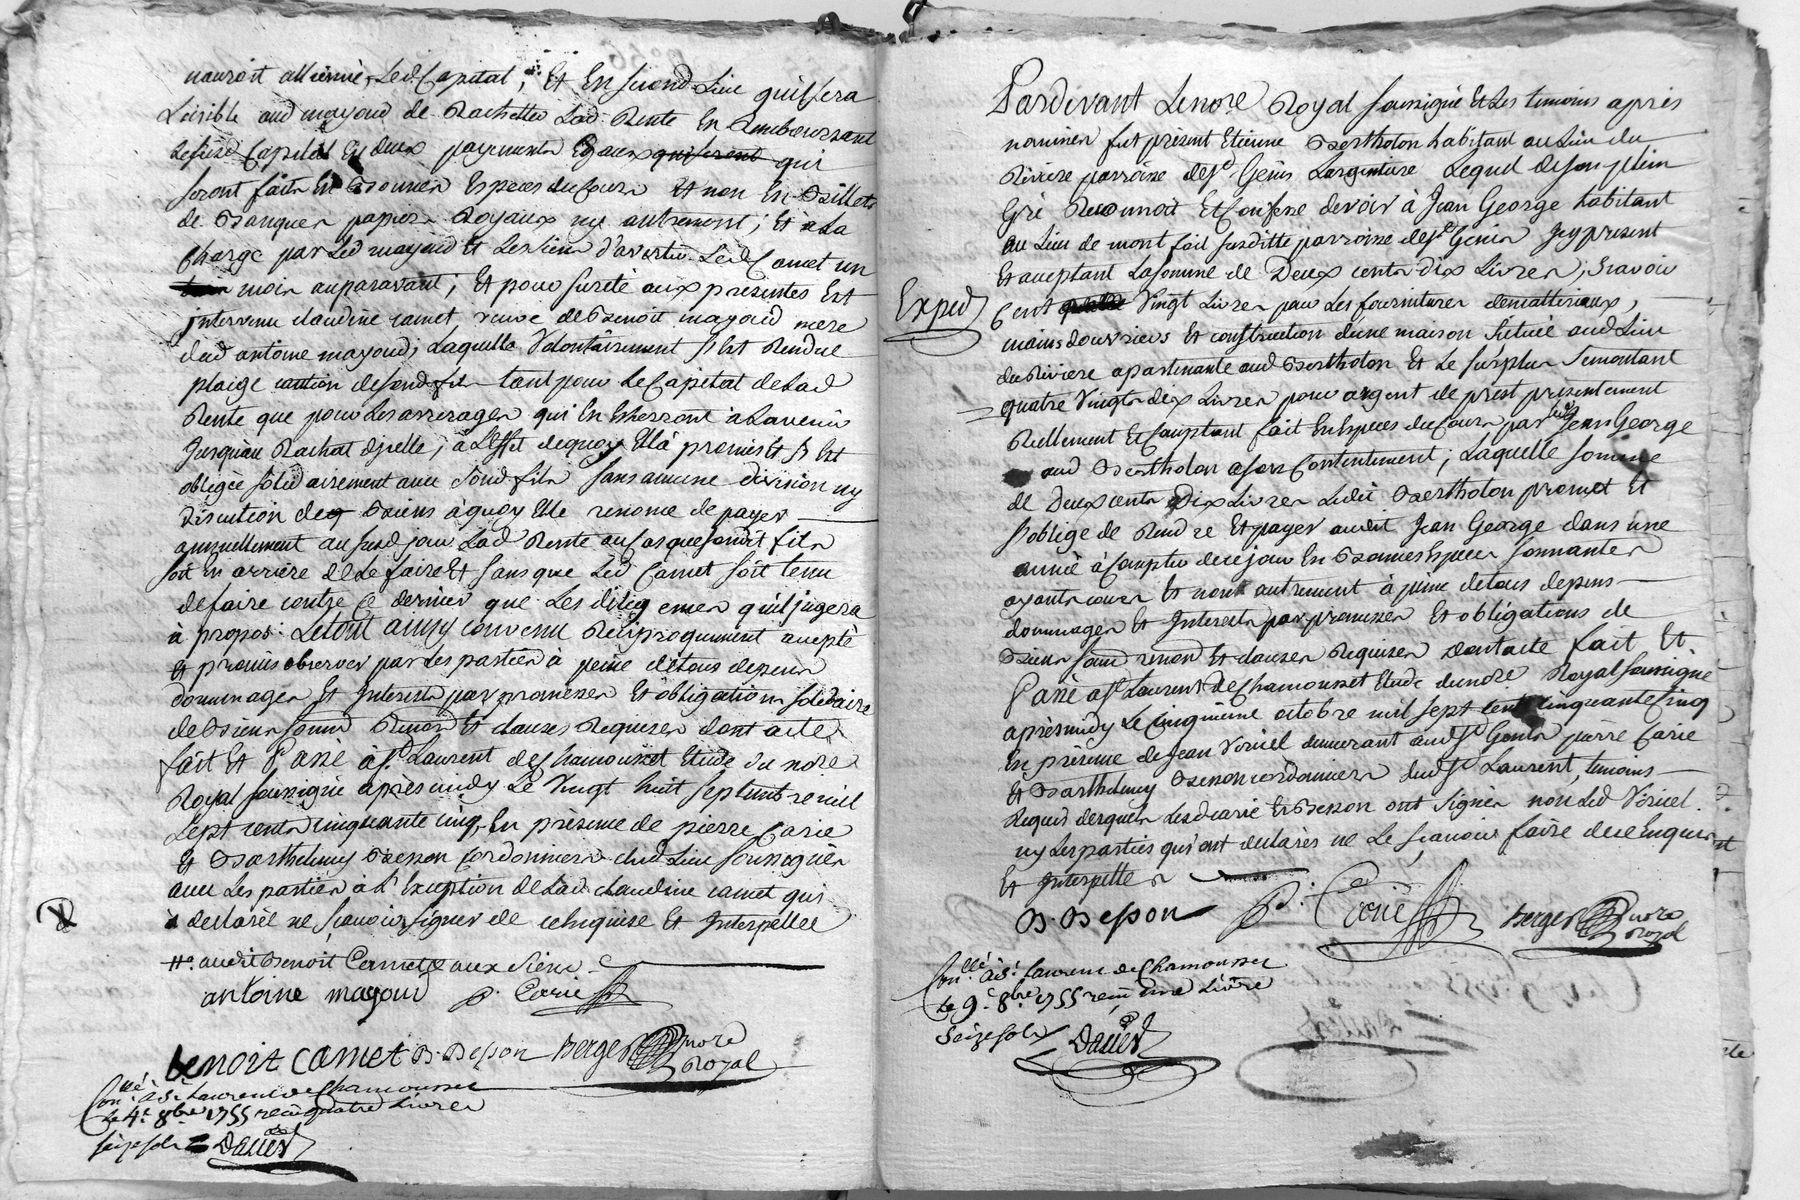 nauroit alliéné, Led. Capital, Et En second Lieu quil sera
Loisible aud mayoud de Rachetter Lad. Rente En Remboursant
Ledit Capital En deux payements Egaux qui seront qui
seront faits En Bonnes Especes du Cours Et non En Billets
de Banques papiers Royaux ny autrement ; Et a La
Charge par Led mayoud Et Les siens d'avertir Led Camet un
mois auparavant ; Et pour sureté aux presentes Est
Intervenu claudine camet, veuve de Benoit mayoud mere
dud antoine mayoud ; Laquelle Volontairement s'Est Rendue
plaige caution de sond. fils tant pour Le Capital de Lad
Rente que pour Les arrerages qui En Eherront a Lavenir
Jusqu'au Rachat d'jcelle ; à L'effet dequoy Elle à promis Et s'Est
obligée solidairement avec sond fils sans aucune division ny
Discution de Biens à quoy Elle renonce de payer
annuellement au susd jour Lad Rente au Cas que sondit fils
soit En arriere de Le faire Et sans que Led Camet soit tenu
de faire contre Ce dernier que Les diligemces qu'il jugera
à propos : Le tout ainsy convenu Reciproquement accepté
Et promis observer par Les parties à peine de tous depens
dommages Et Interests par promesses Et obligation solidaire
de Biens soumis Renon Et clauses Requises dont acte
fait Et Passé à St Laurent de Chamousset Etude du nore
Royal soussigné après midy Le Vingt huit septembre mil
sept cents cinquante cinq, En présence de pierre Carie
Et Barthelemy Besson Cordonniers dud. Lieu soussignés
avec Les parties à L'Exception de Lad. claudine camet qui
à declarée ne scavoir signer de ce Enquise Et Interpellée
#. audit Benoit Camet Et aux siens
antoine mayoud P. Carie
benoit camet B. Besson Berger nore
Royal
Conllé à St Laurent de Chamousset
Le 4e 8bre 1755 reçu quatre Livres
seize sols Daces
Pardevant Le nore Royal soussigné Et Les temoins après
nommés fut présent Etienne Bertholon habitant au Lieu du
Riviere parroisse de St Genis Largentiere Lequel de son plein
Gré Reconnoit Et Confesse devoir à Jean George habitant
au Lieu de mont foil susditte parroisse de St Genis Jcy present
Et acceptant La somme de Deux cents dix Livres ; scavoir
Exped
Cent Vingt Livres pour Les fournitures de mattériaux,
mains d'ouvriers Et construction d'une maison scituée aud Lieu
du Riviere apartenante aud Bertholon Et Le surplus se montant
quatre Vingts dix Livres pour argent de prest presentement
Reellement Et Comptant fait En Especes du Cours par led Jean George
aud Bertholon a son Contentement ; Laquelle somme
de Deux cents Dix Livres Ledit Bertholon promet Et
s'oblige de Rendre Et payer audit Jean George dans une
année à Compter de ce jour En Bonnes Especes sonnantes
ayants cours Et non autrement à peine de tous depens
dommages Et Interests par promesses Et obligations de
Biens soud renon Et clauses Requises Dont acte fait Et
Passé à St Laurent de Chamousset Etude du nore Royal soussigné
après midy Le Cinquième octobre mil sept cent cinquante Cinq
En présence de Jean Viricel demeurant aud St Genis pierre Carie
Et Barthelemy Besson cordonniers dud St Laurent, temoins
Requis desquels Lesd Carie Et Besson ont signés non Led Viricel
ny Les parties qui ont declarés ne Le scavoir faire de ce Enquis
Et Interpellés
B. Besson P. Carie Berger nore
Royal
Conllé à St Laurent de Chamousset
Le 9e 8bre 1755 reçu une Livre
seize sols Daces